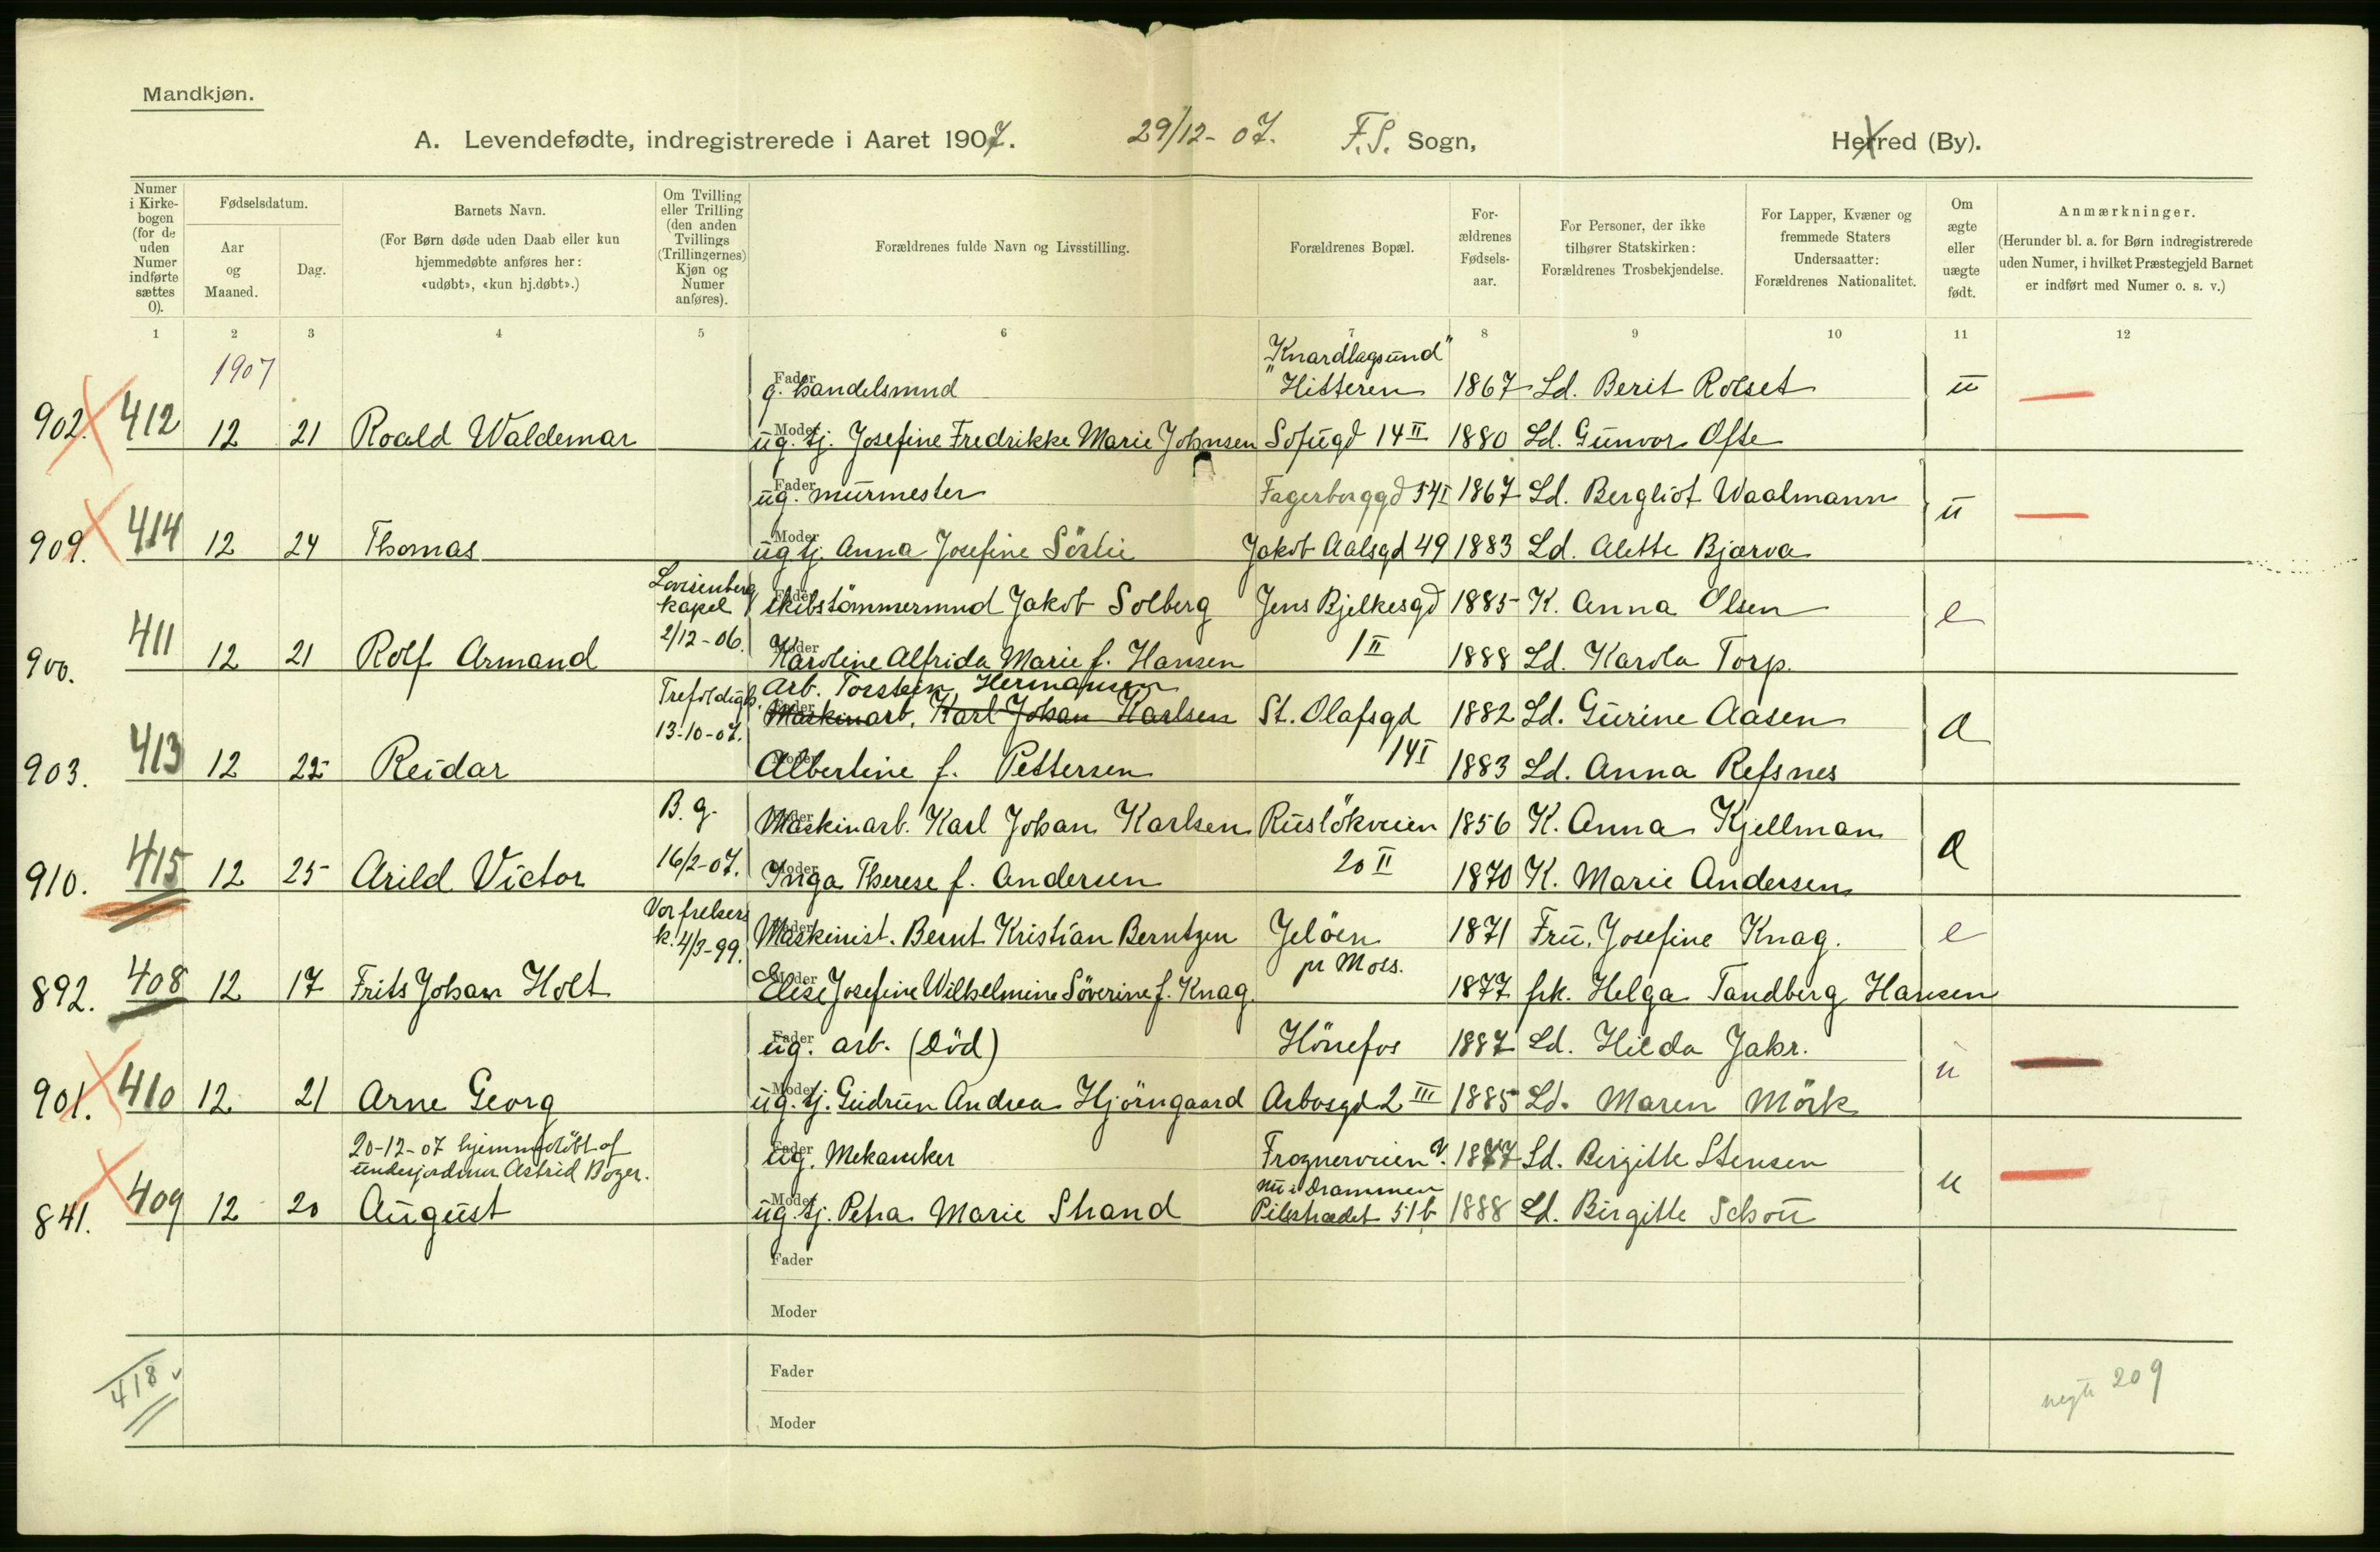 Mandkjøn.
A. Levendefødte, indregistrerede i Aaret 1907. 29/12-07. F.S. Sogn, Herred (By).
Numer i Kirkebogen (for de uden Numer indførte sættes 0).
Fødselsdatum.
Aar og Maaned.
Dag.
Barnets Navn.
(For Børn døde uden Daab eller kun hjemmedøbte anføres her: «udøbt», «kun hj.døbt».)
Om Tvilling eller Trilling (den anden Tvillings (Trillingernes) Kjøn og Numer anføres).
Forældrenes fulde Navn og Livsstilling.
Forældrenes Bopæl.
Forældrenes Fødselsaar.
For Personer, der ikke tilhører Statskirken: Forældrenes Trosbekjendelse.
For Lapper, Kvæner og fremmede Staters Undersaatter: Forældrenes Nationalitet.
Om ægte eller uægte født.
Anmærkninger.
(Herunder bl. a. for Børn indregistrerede uden Numer, i hvilket Præstegjeld Barnet er indført med Numer o. s. v.)
1 2 3 4 5 6 7 8 9 10 11 12
1907
"Knardlagsund"
Fader g. handelsmnd "Hitteren 1867 Ld. Berit Rolset u
902. 412 12 21 Roald Waldemar Moder ug. tj. Josefine Fredrikke Marie Johnsen Sofiegd 14 II 1880 Ld. Gunvor Ofte
Fader ug. murmester Fagerborggd 54 I 1867 Ld. Bergliot Waalmann u
909. 414 12 24 Thomas Moder ug tj. Anna Josefine Sörlie Jakob Aalsgd 49 1883 Ld. Alette Bjærva
Lovisenberg kapel Fader skibstömmermnd Jakob Solberg Jens Bjelkesgd 1885 K. Anna Olsen e
900. 411 12 21 Rolf Armand 2/12-06. Moder Karoline Alfrida Marie f. Hansen 1 II 1888 Ld. Karola Torp.
Trefoldigh. Arb. Torstein Hermansen
Fader Maskinarb. Karl Johan Karlsen St. Olafsgd 1882 Ld. Gurine Aasen a
903. 413 12 22 Reidar 13-10-07. Moder Albertine f. Pettersen 14 I 1883 Ld. Anna Refsnes
B. g. Fader Maskinarb. Karl Johan Karlsen Ruslökveien 1856 K. Anna Kjellman a
910. 415 12 25 Arild Victor 16/2-07. Moder Inga Therese f. Andersen 20 II 1870 K. Marie Andersen
Vor frelsers k. 4/3-99. Fader Maskinist. Bernt Kristian Berntzen Jelöen 1871 Fru. Josefine Knag. e
892. 408 12 17 Frits Johan Holt Moder Elise Josefine Wilhelmine Söverine f. Knag. pr Moss. 1877 frk. Helga Tandberg Hansen
Fader ug. arb. (död) Hönefos 1887 Ld. Hilda Jahr. u
901. 410 12 21 Arne Georg Moder ug. tj. Gudrun Andrea Hjörngaard Arbosgd 2 III 1885 Ld. Maren Mörk
20-12-07 hjemmedöbt af underjordmor Astrid Bozer. Fader ug. Mekaniker Frognerveien ?. 1877 Ld. Birgitte Stensen u
nu i Drammen
841. 409 12 20 August Moder ug. tj. Petra Marie Strand Pilestrædet 51b 1888 Ld. Birgitte Schou
Fader
Moder
Fader
418 uegte 209
Moder